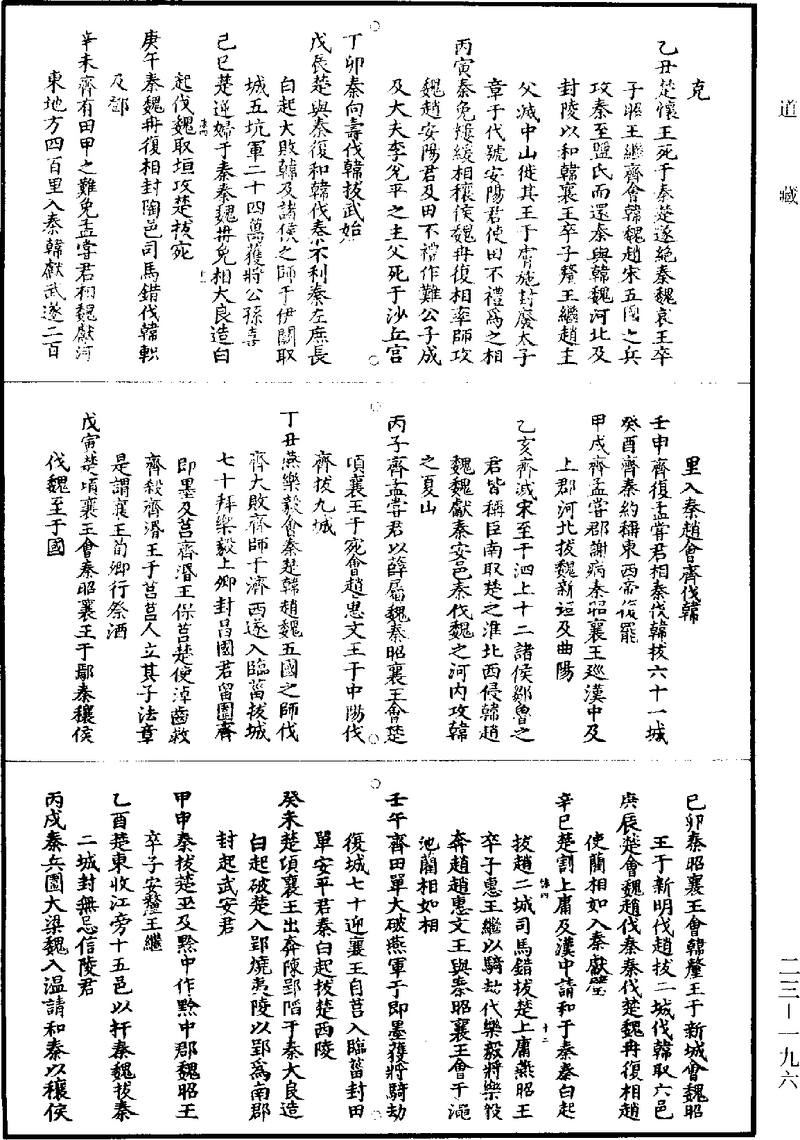 道藏
克
乙丑楚懷王死于秦楚遂絶秦魏哀王卒
子昭王繼齊會韓魏趙宋五國之兵
攻秦至鹽氏而還秦與韓魏河北及
封陵以和韓襄王卒子釐王繼趙主
父滅中山徙其王于膚施封廢太子
章于代號安陽君使田不禮爲之相
丙寅秦免樓緩相穰侯魏冉復相率師攻
魏趙安陽君及田不禮作難公子成
及大夫李兊平之主父死于沙丘宮
丁卯秦向壽伐韓拔武始
戊辰楚與秦復和韓伐秦不利秦左庶長
白起大敗韓及諸侯之師于伊闕取
城五坑軍二十四萬獲將公孫喜
己巳楚逆婦于秦秦魏冉免相大良造白
起伐魏取垣攻楚拔宛
庚午秦魏冉復相封陶邑司馬錯伐韓軹
及鄧
辛未齊有田甲之難免孟嘗君相魏獻河
東地方四百里入秦韓獻武遂二百
里入秦趙會齊伐韓
壬申齊復孟嘗君相秦伐韓拔六十一城
癸酉齊秦約稱東西帝復罷
甲戌齊孟嘗君謝病秦昭襄王廵漢中及
上郡河北拔魏新垣及曲陽
乙亥齊滅宋至于泗上十二諸侯鄒魯之
君皆稱臣南取楚之淮北西侵韓趙
魏魏獻秦安邑秦伐魏之河内攻韓
之夏山
丙子齊孟嘗君以薛屬魏秦昭襄王會楚
頃襄王于宛會趙惠文王于中陽伐
齊拔九城
丁丑燕樂毅會秦楚韓趙魏五國之師伐
齊大敗齊師于濟西遂入臨菑拔城
七十拜樂毅上卿封昌國君留圍齊
即墨及莒齊湣王保莒楚使淖齒救
齊殺齊湣王于莒莒人立其子法章
是謂襄王荀卿行祭酒
戊寅楚頃襄王會秦昭襄王于鄢秦穰侯
伐魏至于國
己卯秦昭襄王會韓釐王于新城會魏昭
王于新明伐趙拔二城伐韓取六邑
庚辰楚會魏趙伐秦秦伐楚魏冉復相趙
使藺相如入秦獻璧
辛巳楚割上庸及漢中請和于秦秦白起
拔趙二城司馬錯拔楚上庸燕昭王
卒子惠王繼以騎劫代樂毅將樂毅
奔趙趙惠文王與秦昭襄王會于澠
池藺相如相
壬午齊田單大破燕軍于即墨獲將騎劫
復城七十迎襄王自莒入臨菑封田
單安平君秦白起拔楚西陵
癸未楚頃襄王出奔陳郢陷于秦大良造
白起破楚入郢燒夷陵以郢爲南郡
封起武安君
甲申秦拔楚巫及黔中作黔中郡魏昭王
卒子安釐王繼
乙酉楚東收江旁十五邑以扞秦魏拔秦
二城封無忌信陵君
丙戌秦兵圍大梁魏入温請和秦以穰侯
二三－一九六